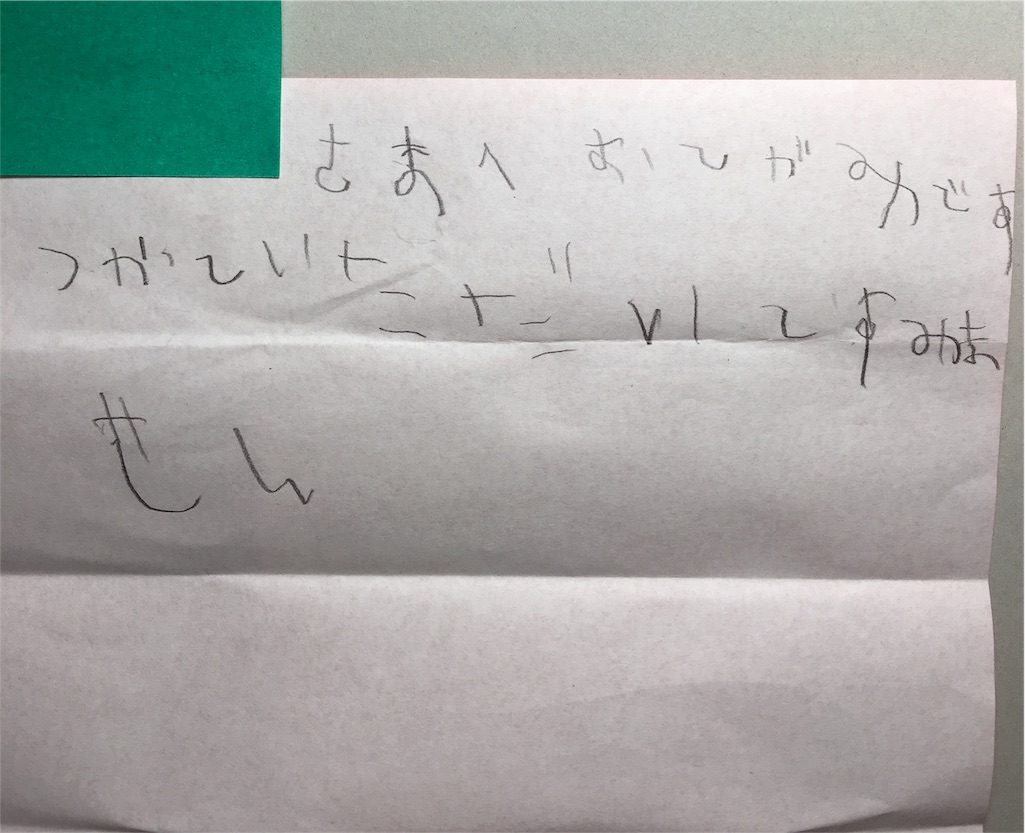 さまへ おてがみです
つかていただいてすみま
せん